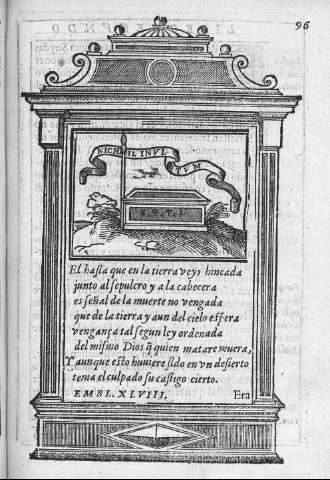 96
NICHIL INVL TVM
S.T.T.L.
El hasta que en la tierra veys hincada
junto al sepulcro y a la cabecera
es señal de la muerte no vengada
que de la tierra y aun del cielo espera
vengança tal segun ley ordenada
del mismo Dios q̃ quien matare muera,
Y aunque esto huviere sido en vn desierto
tema el culpado su castigo cierto.
EMBL. XLVIII. Era